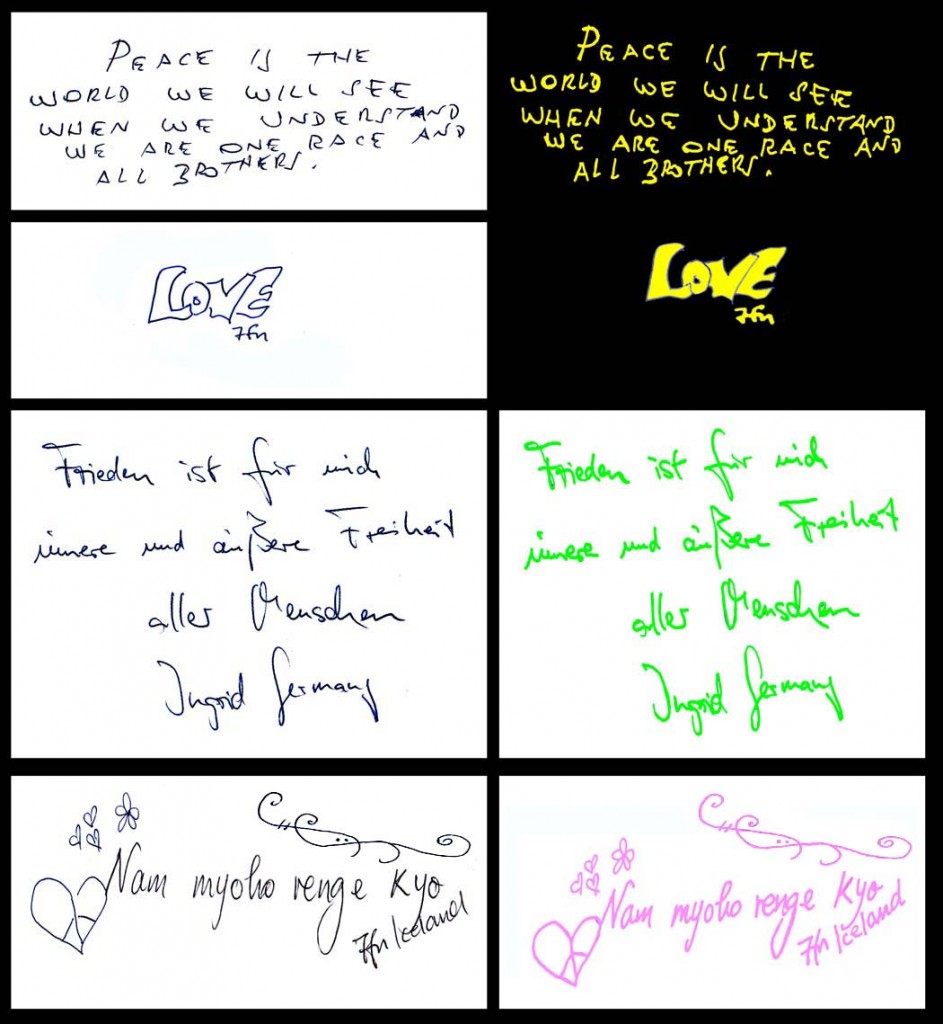 PEACE IS THE
WORLD WE WILL SEE
WHEN WE UNDERSTAND
WE ARE ONE RACE AND
ALL BROTHERS.
PEACE IS THE
WORLD WE WILL SEE
WHEN WE UNDERSTAND
WE ARE ONE RACE AND
ALL BROTHERS.
LOVE
LOVE
Frieden ist für mich
innere und äußere Freiheit
aller Menschen
Ingrid Germany
Frieden ist für mich
innere und äußere Freiheit
aller Menschen
Ingrid Germany
Nam myoho renge Kyo
Iceland
Nam myoho renge Kyo
Iceland